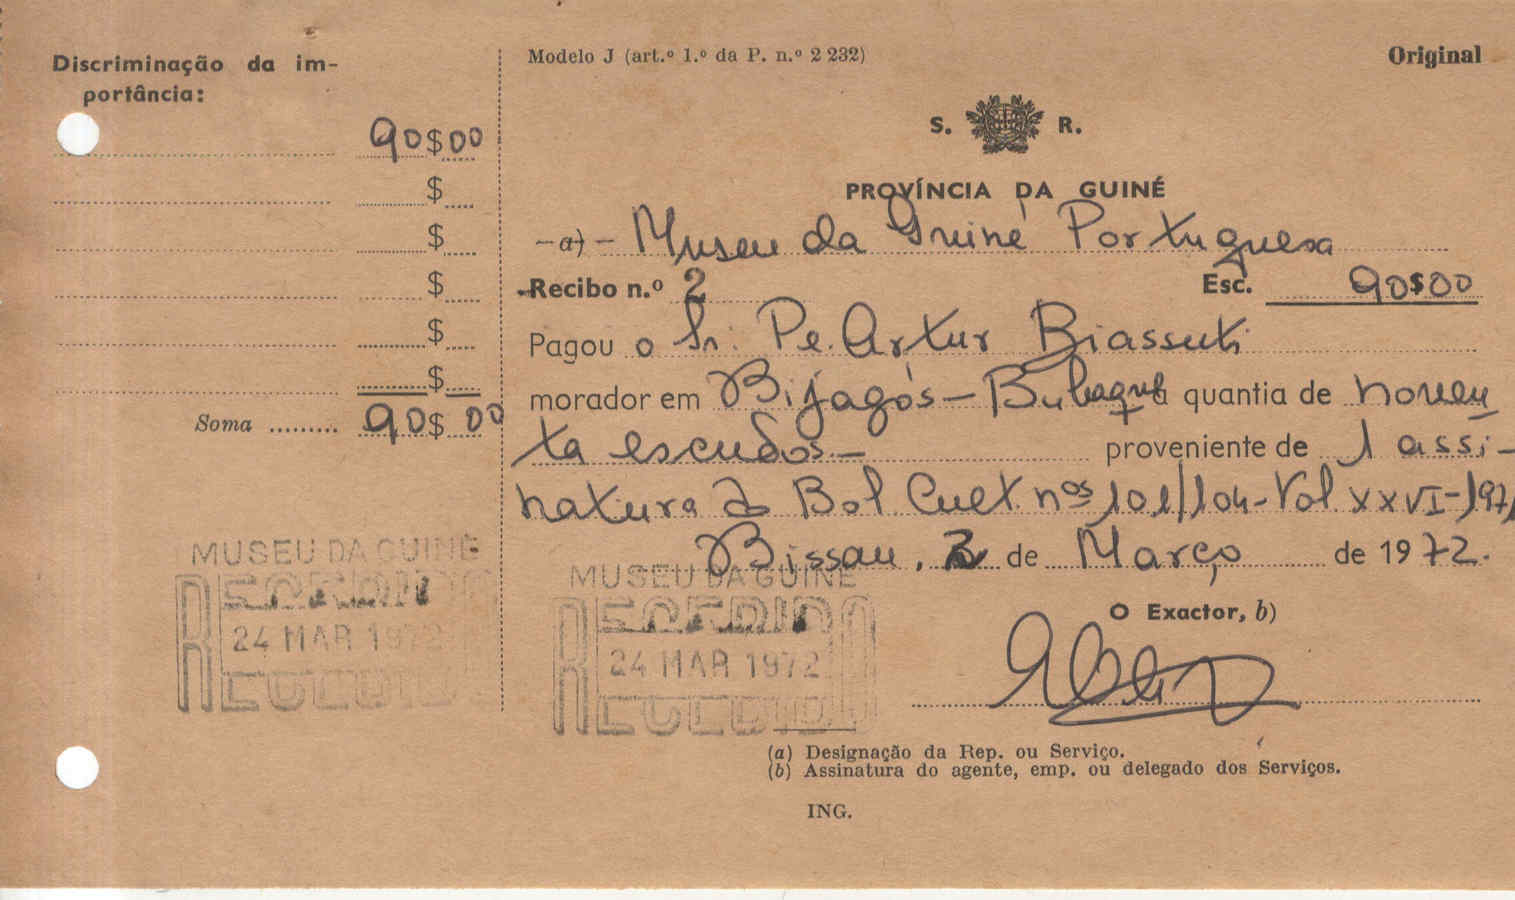 Discriminação da im-
portância:
90$00
$
$
$
$
$
Soma ......... 90$00
MUSEU DA GUINÉ
RECEBIDO
24 MAR 1972
Modelo J (art.º 1.º da P. n.º 2 232)
Original
S. R.
PROVÍNCIA DA GUINÉ
a) - Museu da Guiné Portuguesa
Recibo n.º 2 Esc. 90$00
Pagou o Sr. Pe. Artur Biassuti
morador em Bijagós - Bubaque a quantia de noven
ta escudos - proveniente de 1 assi-
natura do Bol Cult nos 101/104 - Vol XXVI - 1971
Bissau, 2 de Março de 1972.
MUSEU DA GUINÉ
RECEBIDO
24 MAR 1972
O Exactor, b)
(a) Designação da Rep. ou Serviço.
(b) Assinatura do agente, emp. ou delegado dos Serviços.
ING.